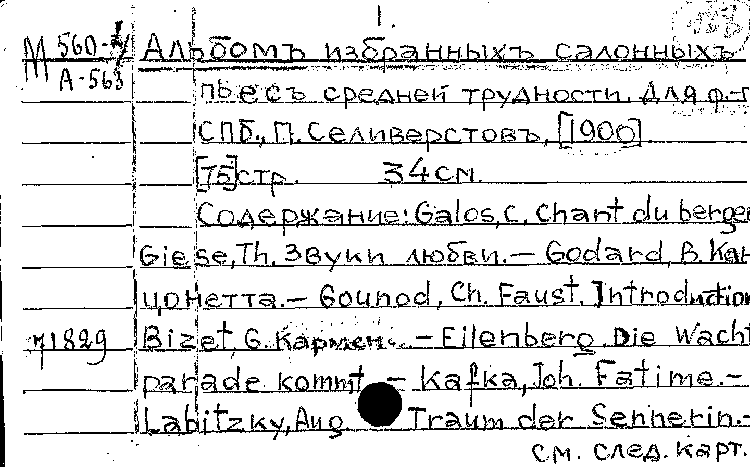 1.
М 560-
А-563
Альбомъ избранныхъ салонныхъ
пьесъ средней трудности. Для ф.-п
СПБ., П. Селиверстовъ, [1900]
[75] стр. 34 см.
Содержание: Galos, C. Chant du berger
Giese, Th. Звуки любви. — Godard, B. Кан
цонетта. — Gounod, Ch. Faust. Introduction
71829 Bizet, G. Кармен. — Eilenberg. Die Wacht
parade kommt. — Kafka, Joh. Fatime. —
Labitzky, Aug Traum der Sennerin. —
см. след. карт.